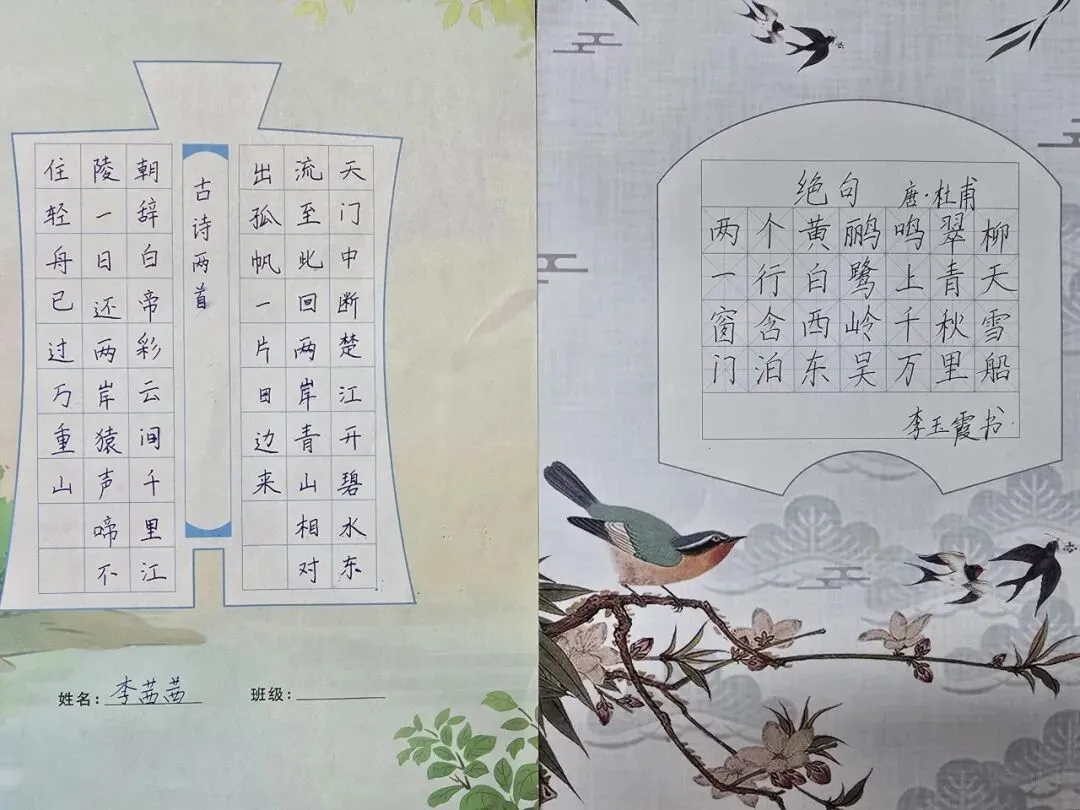 天门中断楚江开碧水东
流至此回两岸青山相对
出孤帆一片田边来
古诗两首
朝辞白帝彩云间千里江
陵一日还两岸猿声啼不
住轻舟已过万重山
姓名：李茜茜 班级：
绝句 唐·杜甫
两个黄鹂鸣翠柳
一行白鹭上青天
窗含西岭千秋雪
门泊东吴万里船
李玉霞书